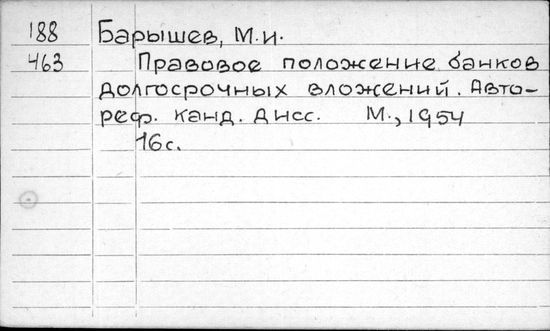 188 Барышев, М.И.
463 Правовое положение банков
долгосрочных вложений. Авто-
реф. канд. дисс. М., 1954
16с.